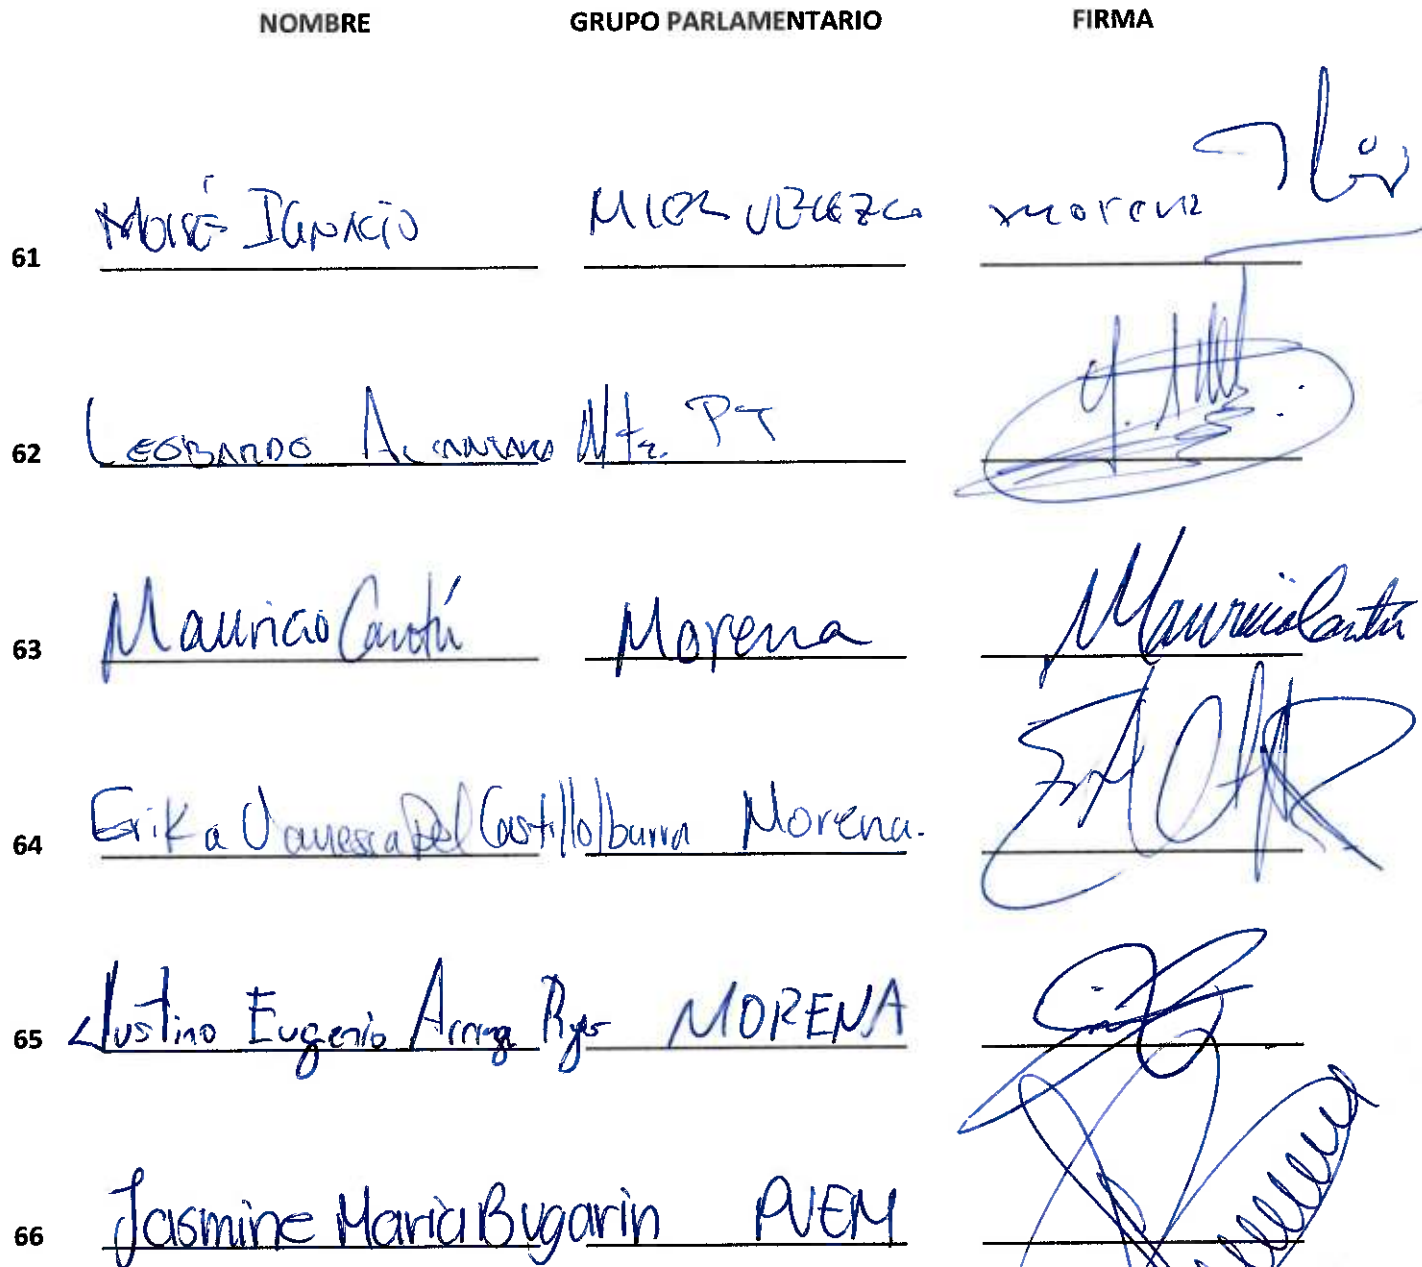 NOMBRE GRUPO PARLAMENTARIO FIRMA
61 Moisé Ignacio Mier Velazco morena
62 Leobardo Alcantara Mtz. PT
63 Mauricio Cantú Morena Mauricio Cantú
64 Erika Vanessa Del Castillo Ibarra Morena.
65 Justino Eugenio Arriaga Rojas MORENA
66 Jasmine María Bugarín PVEM